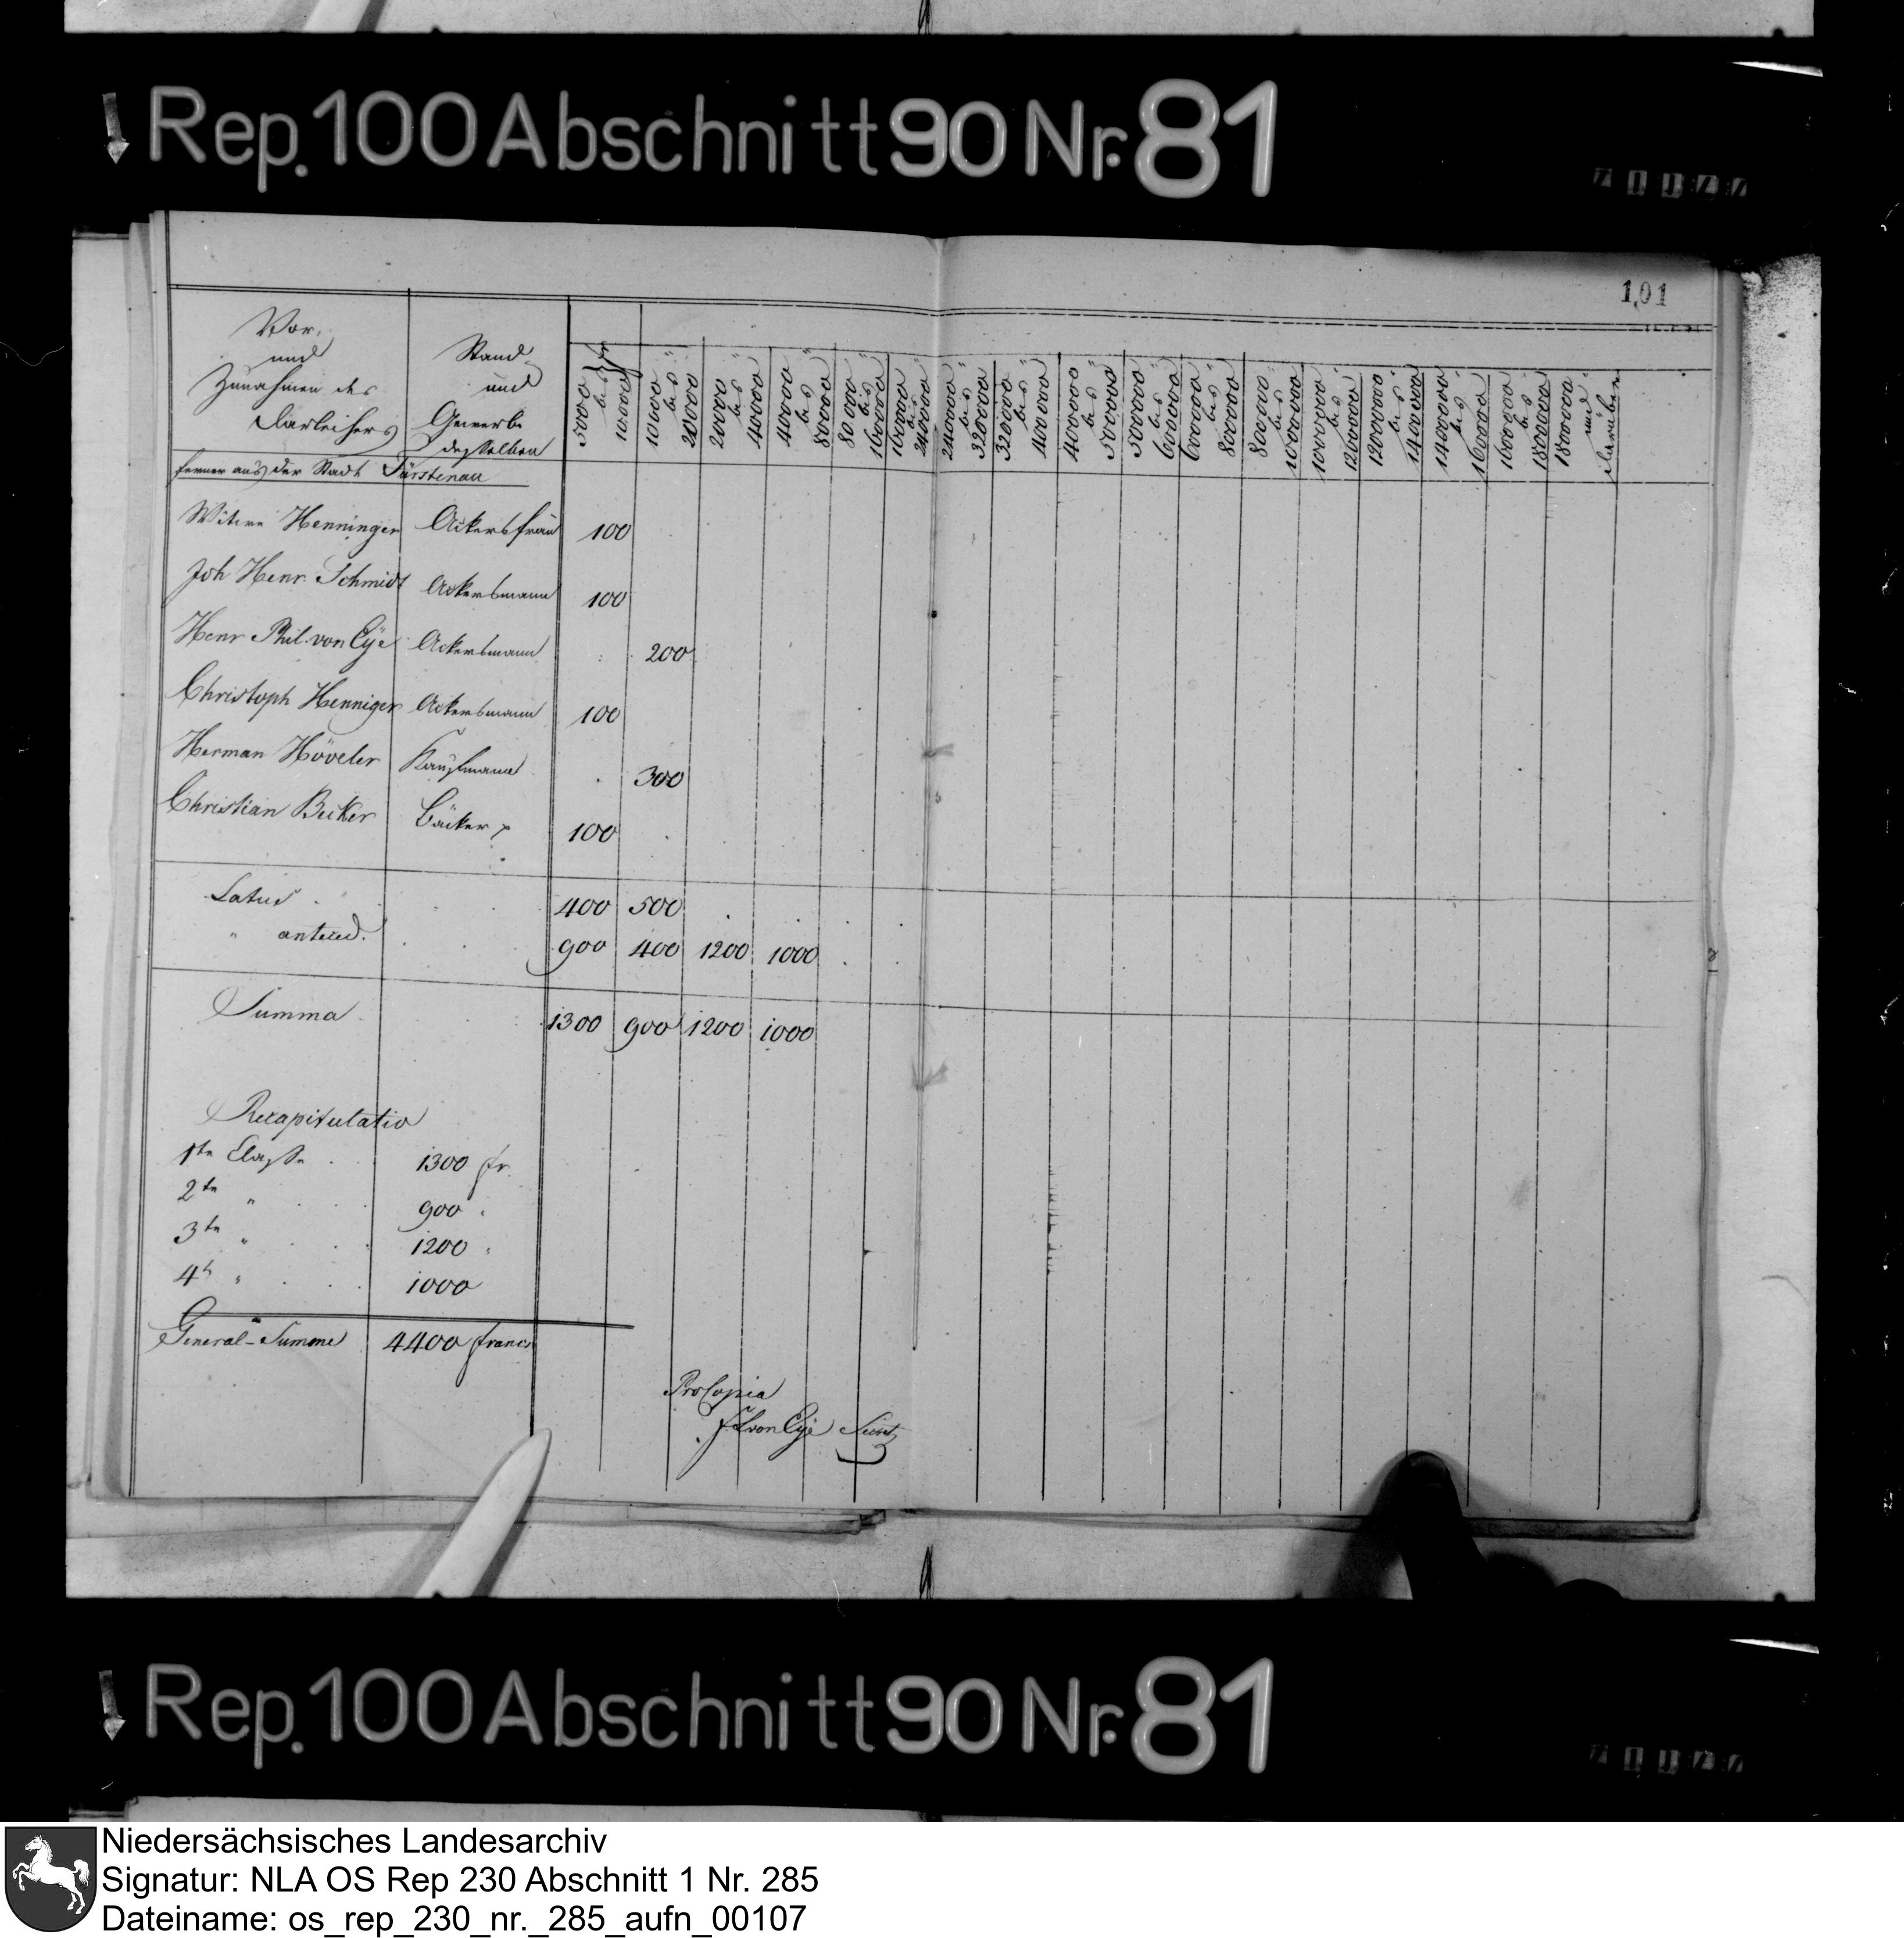 Rep. 100 Abschnitt 90 Nr. 81
101
Vor,
und
Zunahmen des
Darleihers
Stand
und
Gewerbe
desselben
5000 bis 10000 fr
10000 bis 20000 "
20000 bis 40000 "
40000 bis 80000 "
80000 bis 160000 "
160000 bis 240000 "
240000 bis 320000 "
320000 bis 400000 "
400000 bis 500000 "
500000 bis 600000 "
600000 bis 800000 "
800000 bis 1000000 "
1000000 bis 1200000 "
1200000 bis 1400000 "
1400000 bis 1600000 "
1600000 bis 1800000 "
1800000 und darüber
ferner aus der Stadt Fürstenau
Witwe Henninger Ackersfrau 100
Joh Henr. Schmidt Ackersmann 100
Henr Phil. von Eÿe Ackersmann 200
Christoph Henniger Ackersmann 100
Herman Höveler Kaufmann 300
Christian Becker Bäcker 100
Latus 400 500
" anteced. 900 400 1200 1000
Summa 1300 900 1200 1000
Recapitulatio
1te Classe 1300 fr.
2te " 900 "
3te " 1200 "
4te " 1000
General-Summe 4400 francs
Pro Copia
von Eÿe Secret
Rep. 100 Abschnitt 90 Nr. 81
Niedersächsisches Landesarchiv
Signatur: NLA OS Rep 230 Abschnitt 1 Nr. 285
Dateiname: os_rep_230_nr._285_aufn_00107